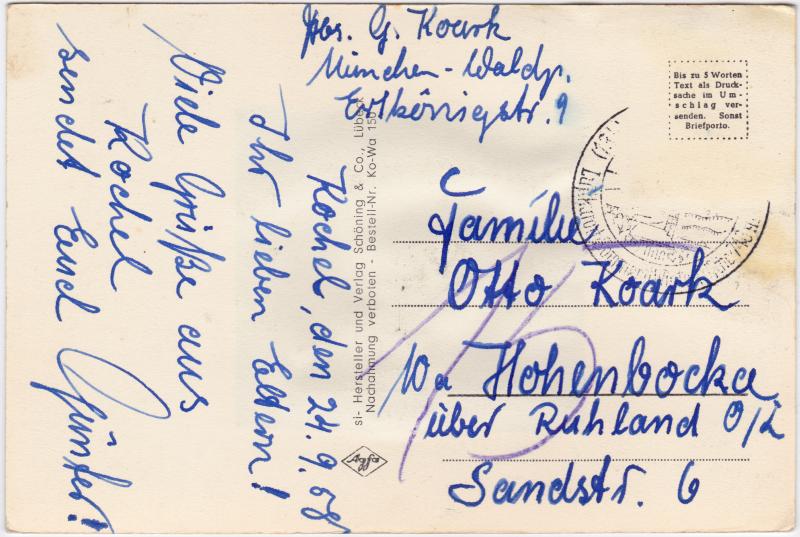 Abs. G. Koark
München-Waldp.
Erlkönigstr. 9
Kochel, den 24. 9. 58
Ihr lieben Eltern!
Viele Grüße aus
Kochel
sendet Euch Günter!
si- Hersteller und Verlag Schöning & Co., Lübeck
Nachahmung verboten - Bestell-Nr. Ko-Wa 150
Agfa
Bis zu 5 Worten
Text als Druck-
sache im Um-
schlag ver-
senden. Sonst
Briefporto.
Familie
Otto Koark
10a Hohenbocka
über Ruhland O/L
Sandstr. 6
15